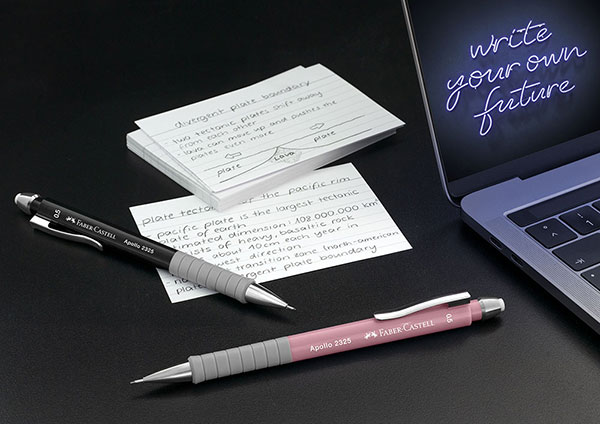 write
your own
future
divergent plate boundary
- two tectonic plates shift away
from each other
- lava can move up and pushes the
plates even more
plate
Lava
plate
plate the pacific rim
pacific plate is the largest tectonic
plate of earth
dimension: 108.000.000 km²
of heavy, basaltic rock
of about 10cm each year in
west direction
transition zone (north-american
plate boundary
0.5 FABER-CASTELL Apollo 2325
Apollo 2325 FABER-CASTELL 0.5